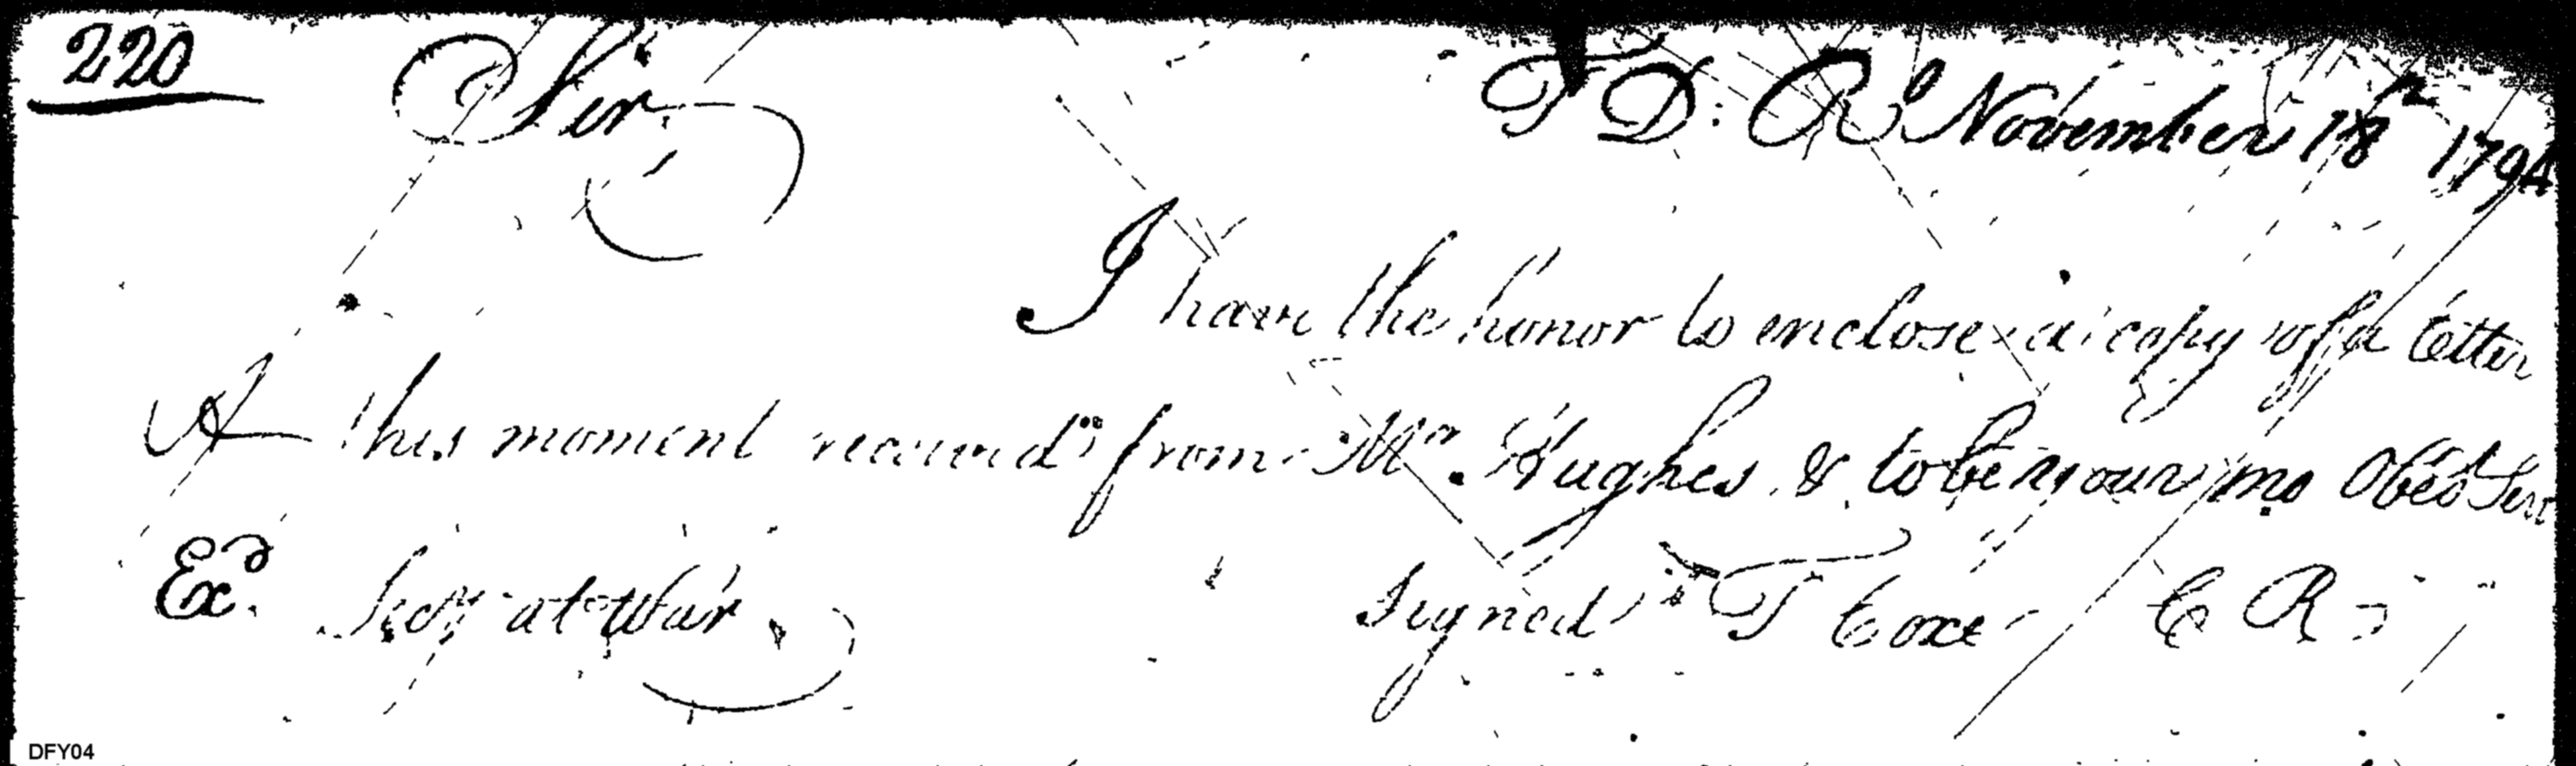 220 Sir T D: R.o November 18th 1794
I have the honor to enclose a copy of a letter
A this moment received from Mr. Hughes & to be your mo Obed Serv
Exd. Secy at War Signed T Coxe C R
DFY04